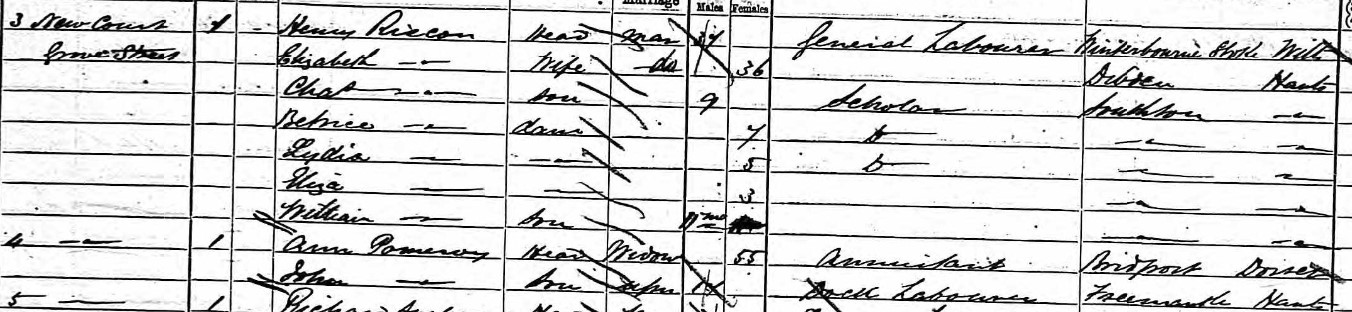 Marriage Males Females
3 New Court 1 - Henry Rixcon Head Mar 37 General Labourer Winterbourne Stoke Wilts
Grove Street Elizabeth — Wife do 36 Dibden Hants
Chas — Son 9 Scholar Southton —
Betrice — daur 7 Do — —
Lydia — — 5 Do — —
Eliza — — 3 — —
William — Son 11 mo — —
4 — 1 Ann Pomeroy Head Widow 55 Annuitant Bridport Dorset
John — Son Dock Labourer Freemantle Hants
5 — 1 Richard